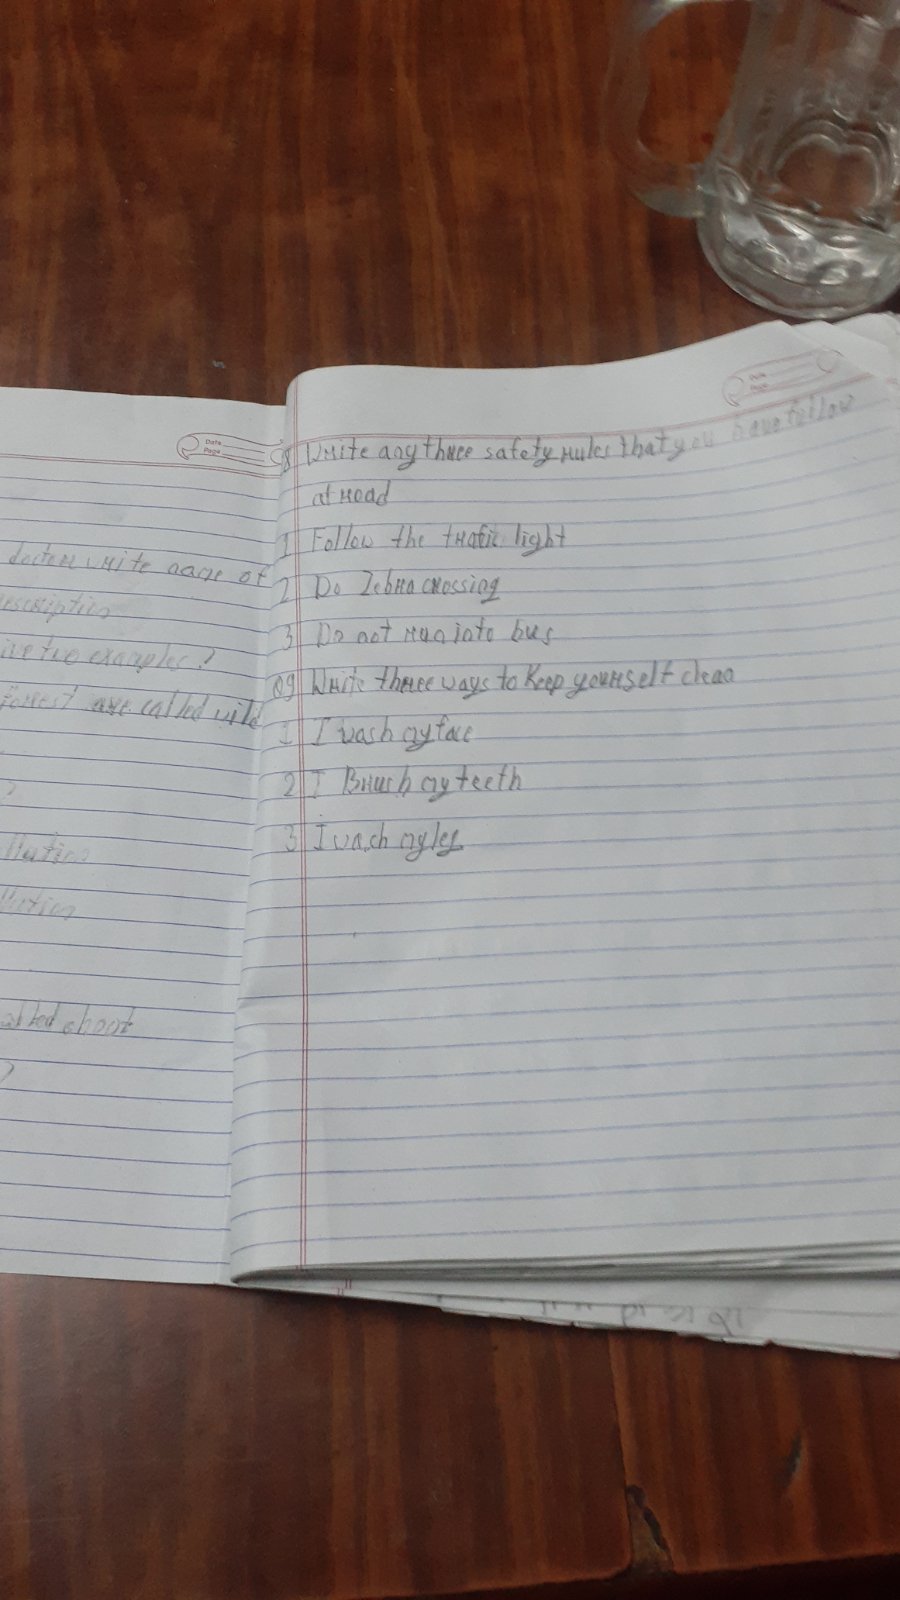 Date
Page
doctor write name of
escription
ive two examples?
Forest are called wild
?
llation
llution
alled about
?
Date
Page
8 Write any three safety rules that you have follow
at road
1 Follow the trafic light
2 Do Zebra crossing
3 Do not run into bus
Q9 Write three ways to Keep yourself clean
1 I wash my face
2 I Brush my teeth
3 I wash my leg